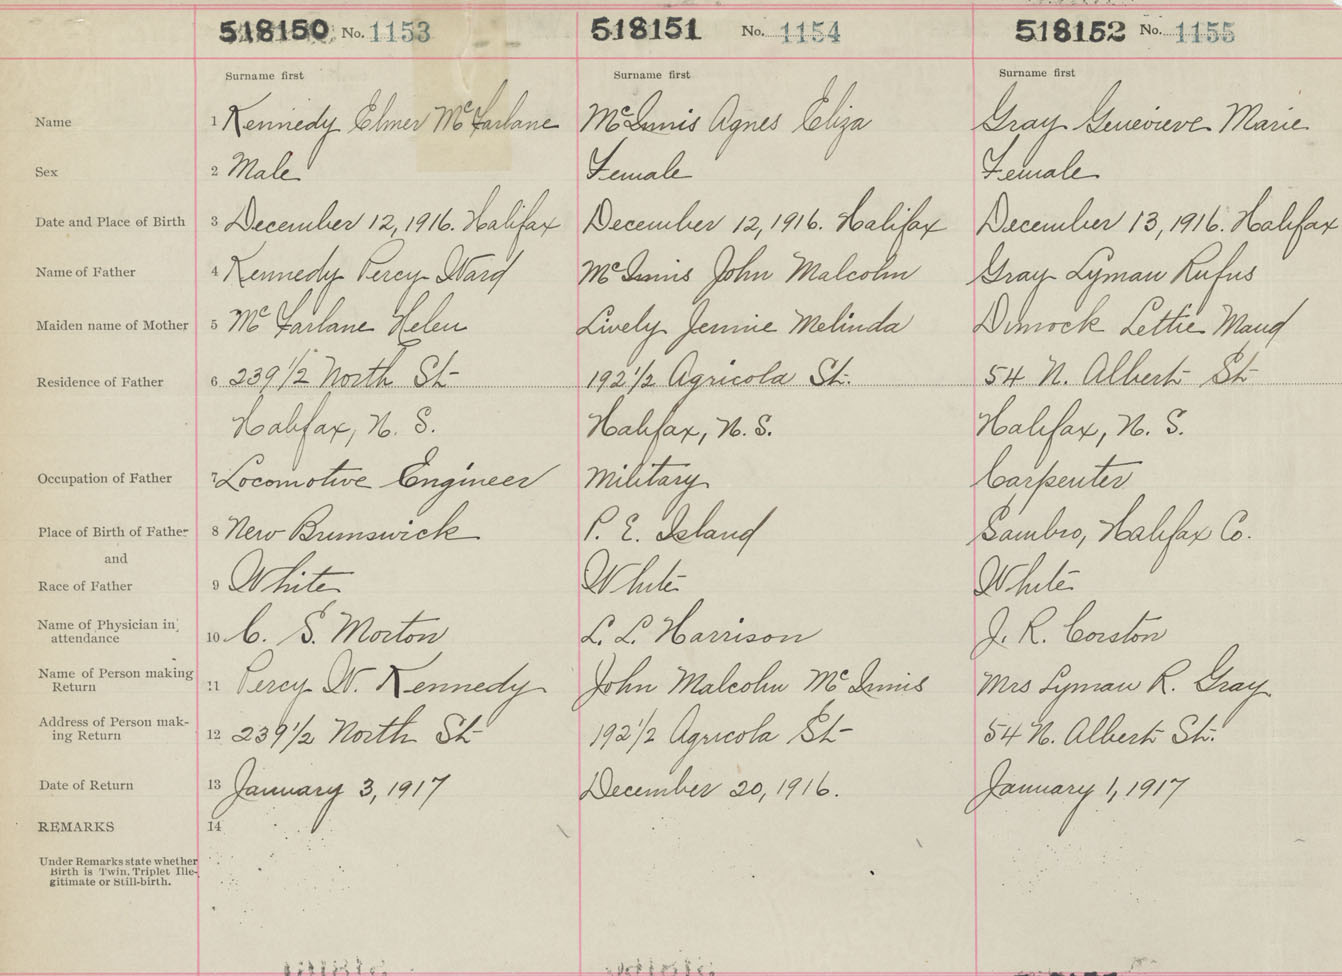 518150 No. 1153 518151 No. 1154 518152 No. 1155
Surname first Surname first Surname first
Name 1 Kennedy Elmer McFarlane McInnis Agnes Eliza Gray Genevieve Marie
Sex 2 Male Female Female
Date and Place of Birth 3 December 12, 1916. Halifax December 12, 1916. Halifax December 13, 1916. Halifax
Name of Father 4 Kennedy Percy Ward McInnis John Malcolm Gray Lyman Rufus
Maiden name of Mother 5 McFarlane Helen Lively Jennie Melinda Dimock Lettie Maud
Residence of Father 6 239 1/2 North St 192 1/2 Agricola St. 54 N. Albert St
Halifax, N. S. Halifax, N. S. Halifax, N. S.
Occupation of Father 7 Locomotive Engineer Military Carpenter
Place of Birth of Father 8 New Brunswick P. E. Island Sambro, Halifax Co.
and
Race of Father 9 White White White
Name of Physician in
attendance 10 C. S. Morton L. L. Harrison J. R. Corston
Name of Person making
Return 11 Percy W. Kennedy John Malcolm McInnis Mrs Lyman R. Gray
Address of Person mak-
ing Return 12 239 1/2 North St 192 1/2 Agricola St 54 N. Albert St.
Date of Return 13 January 3, 1917 December 20, 1916. January 1, 1917
REMARKS 14
Under Remarks state whether
Birth is Twin, Triplet Ille-
gitimate or Still-birth.